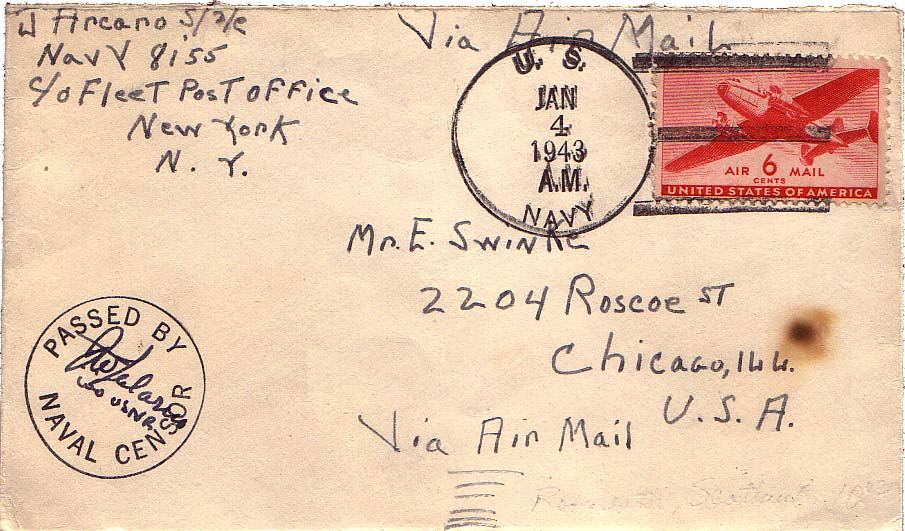 J Arcaro S/2/c
Navy 8155
c/o Fleet Post Office
New York
N. Y.
Via Air Mail
U. S.
JAN
4
1943
A.M.
NAVY
AIR 6 MAIL
CENTS
UNITED STATES OF AMERICA
Mr. E. Swinke
2204 Roscoe ST
Chicago, Ill.
U.S.A.
Via Air Mail
PASSED BY
USNR
NAVAL CENSOR
Scotland